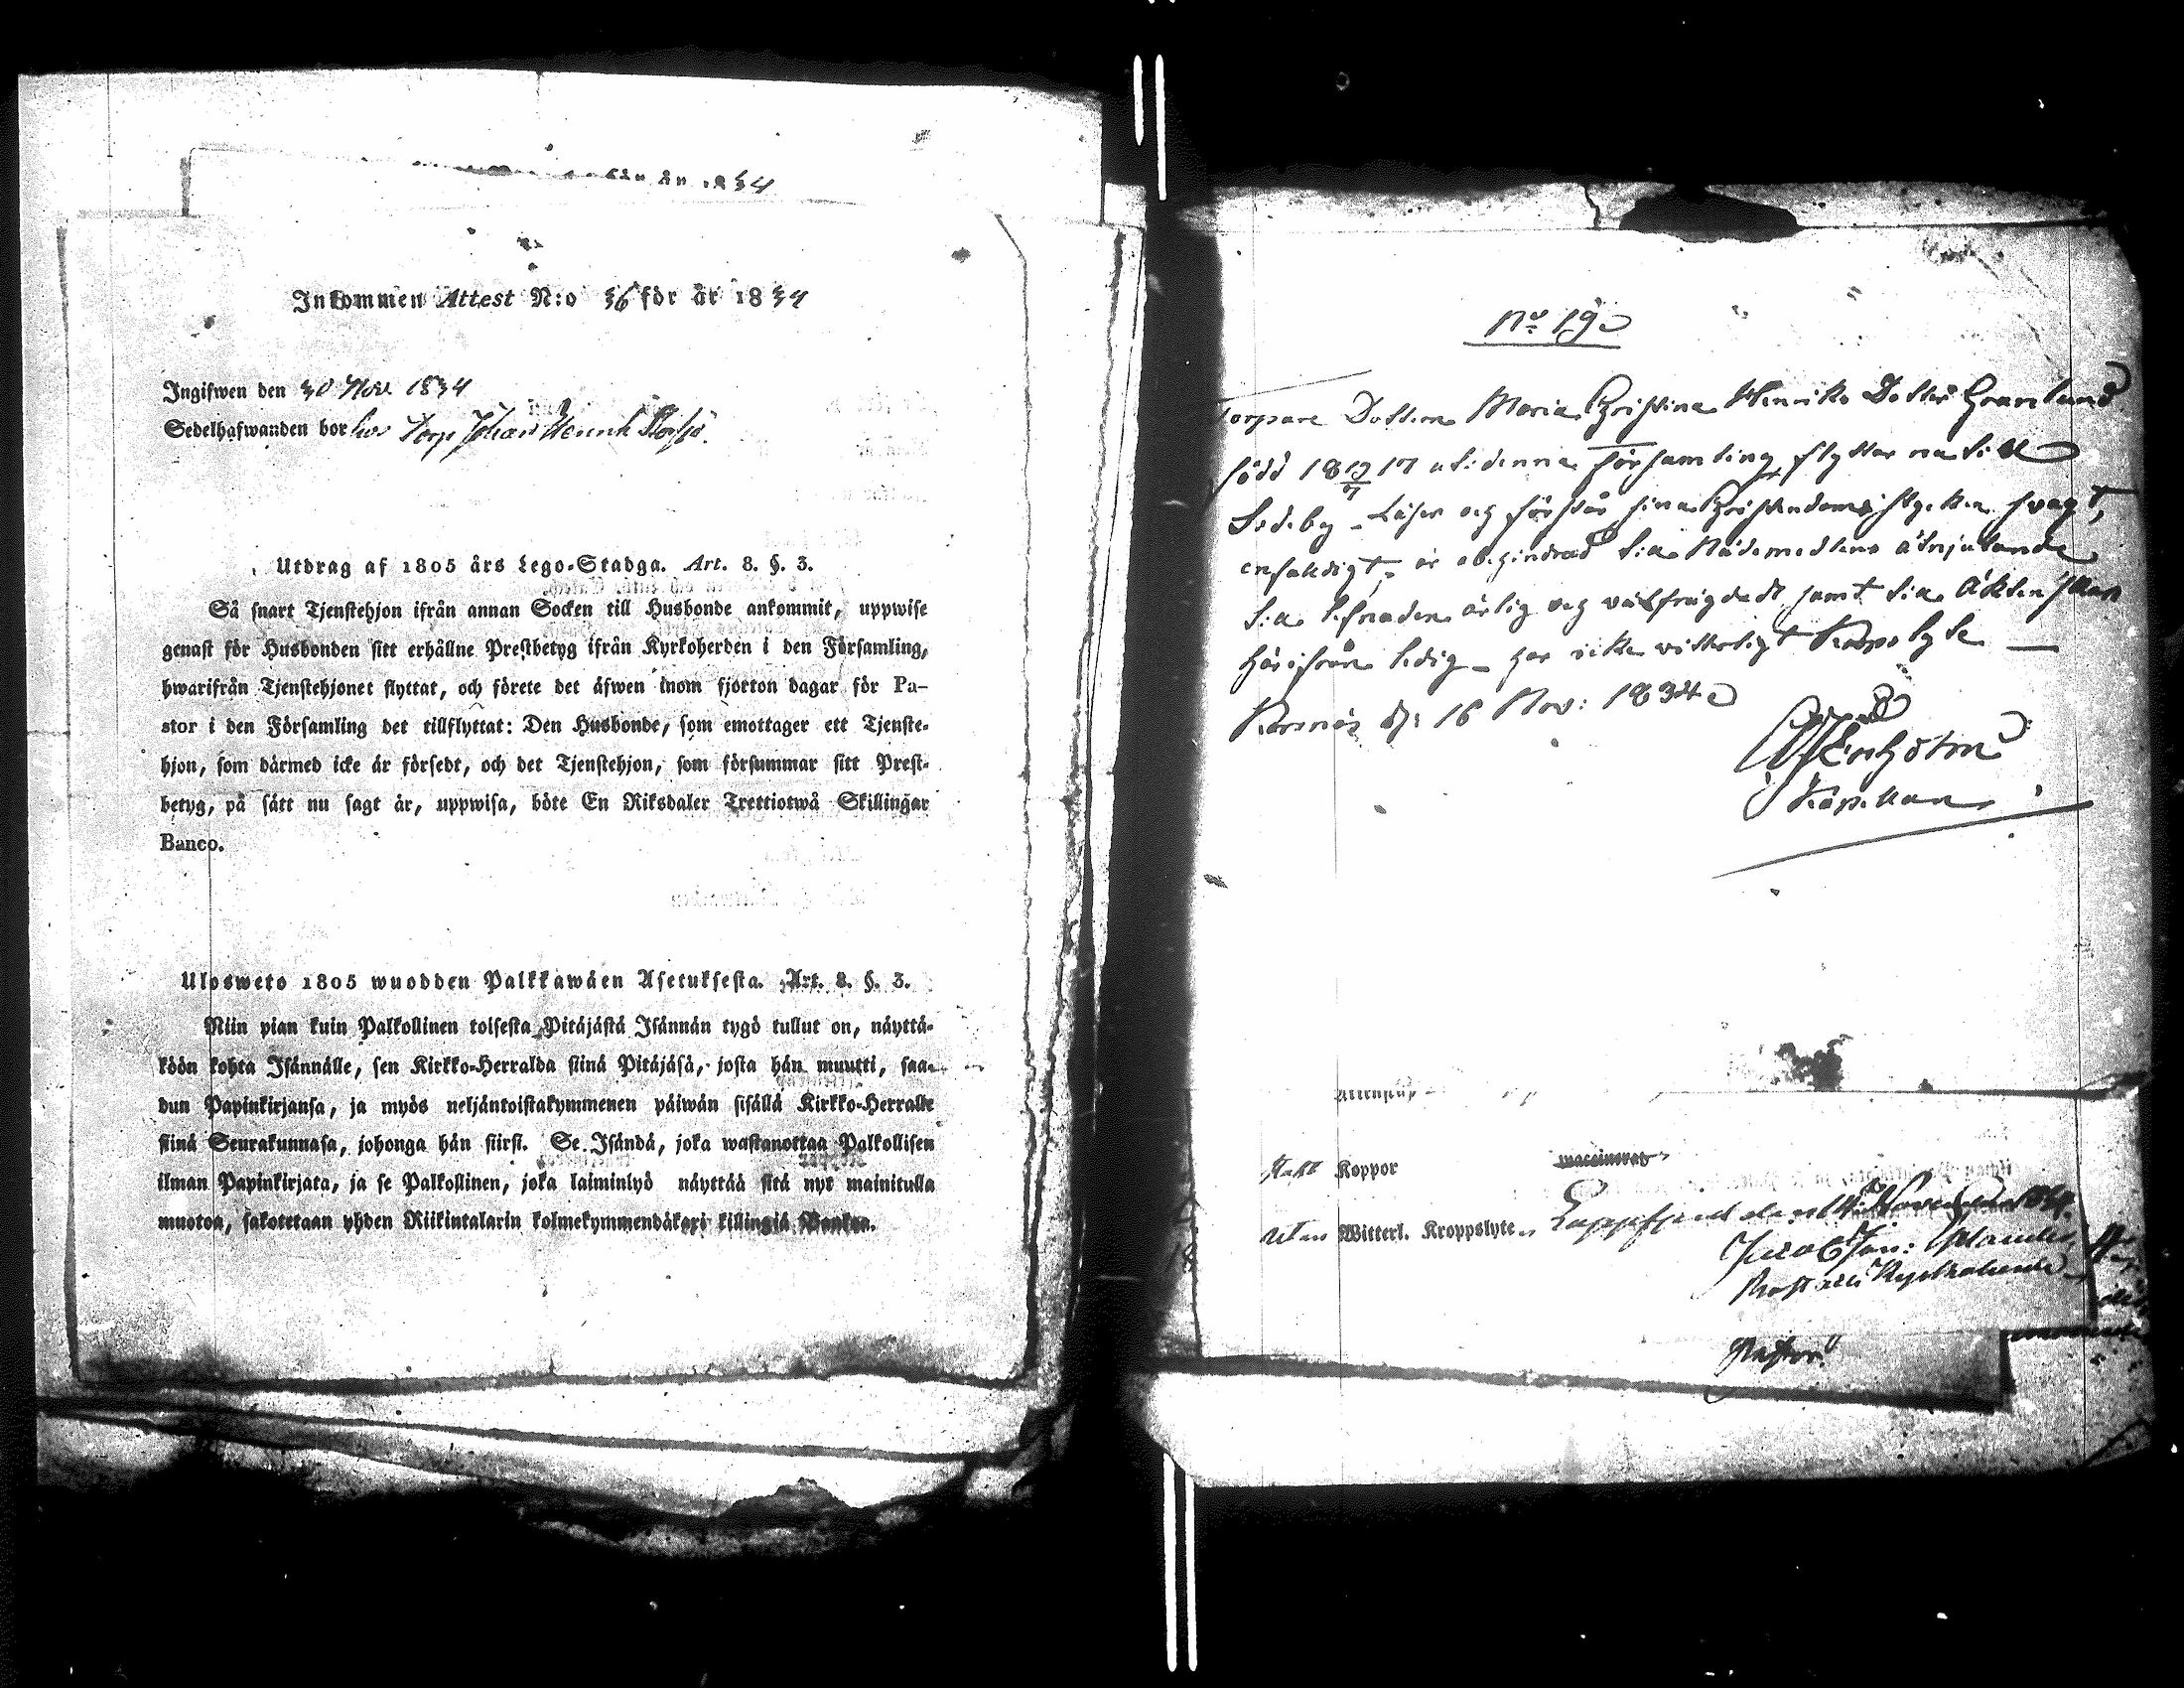 för år 1834
Inkommen Attest N:o 36 för år 1834
Ingifwen den 30 Nov. 1834
Sedelhafwanden bor hos Torp. Johan Henrik
Utdrag af 1805 års Lego-Stadga. Art. 8. §. 3.
Så snart Tjenstehjon ifrån annan Socken till Husbonde ankommit, uppwise
genast för Husbonden sitt erhållne Prestbetyg ifrån Kyrkoherden i den Församling,
hwarifrån Tjenstehjonet flyttat, och förete det äfwen inom fjorton dagar för Pa-
stor i den Församling det tillflyttat: Den Husbonde, som emottager ett Tjenste-
hjon, som därmed icke är försedt, och det Tjenstehjon, som försummar sitt Prest-
betyg, på sätt nu sagt är, uppwisa, böte En Riksdaler Trettiotwå Skillingar
Banco.
Ulosweto 1805 wuodden Palkkawäen Asetuksesta. Art. 8. §. 3.
Niin pian kuin Palkollinen toisesta Pitäjästä Isännän tygö tullut on, näyttä-
köön kohta Isännälle, sen Kirkko-Herralda siinä Pitäjäsä, josta hän muutti, saa-
dun Papinkirjansa, ja myös neljäntoistakymmenen päiwän sisällä Kirkko-Herralle
siinä Seurakunnasa, johonga hän siirsi. Se Isändä, joka wastanottaa Palkollisen
ilman Papinkirjata, ja se Palkollinen, joka laiminlyö näyttää sitä nyt mainitulla
muotoa, sakotetaan yhden Riikintalarin kolmekymmendäkaxi killingiä Bankoa.
No 19
Torpare Dottern Maria Christina Henriks Dotter Granlund
född 18 17 uti denna Församling, flyttar nu till
Sideby - Läser och förstår sina Christendoms stycken svagt,
enfaldigt, är obehindrad till Nådemedlens åtnjutande
till lefnaden ärlig och välfrägdad samt till Äktenskap
härifrån ledig - har icke vitterligt Kropslyte
d: 16 Nov: 1834
Kapellan
Haft Koppor vaccinerad
utan Witterl. Kroppslyte. Lappfjerd den 14 November 1834.
Jacob
Prost och Kyrkoherde
Pastor